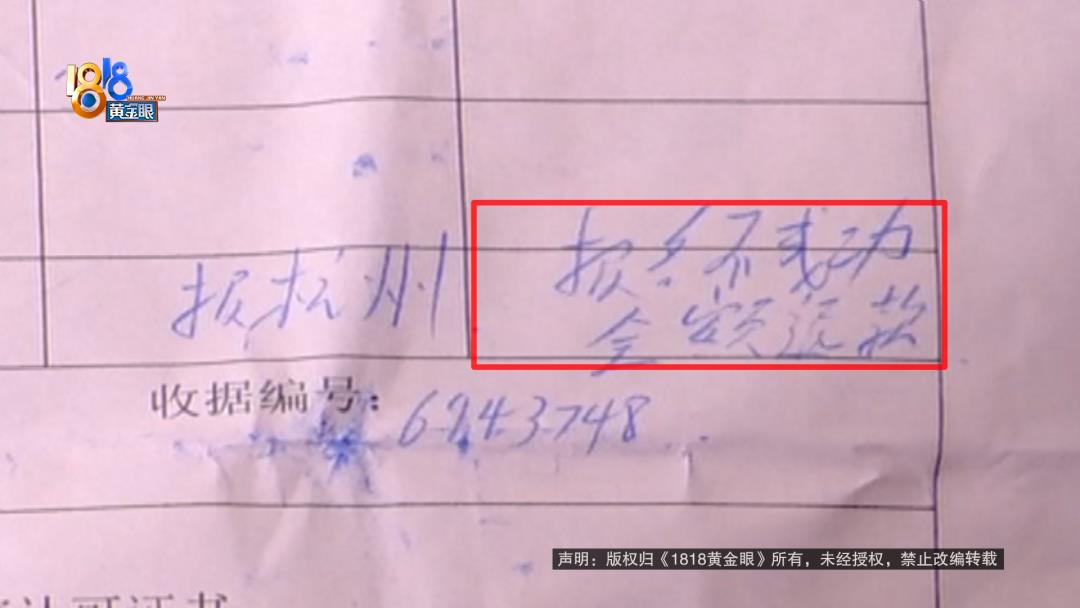 1818
HUANG JIN YAN
黄金眼
报名不成功
全额退款
报杭州
收据编号：6243748
认可证书
声明：版权归《1818黄金眼》所有，未经授权，禁止改编转载